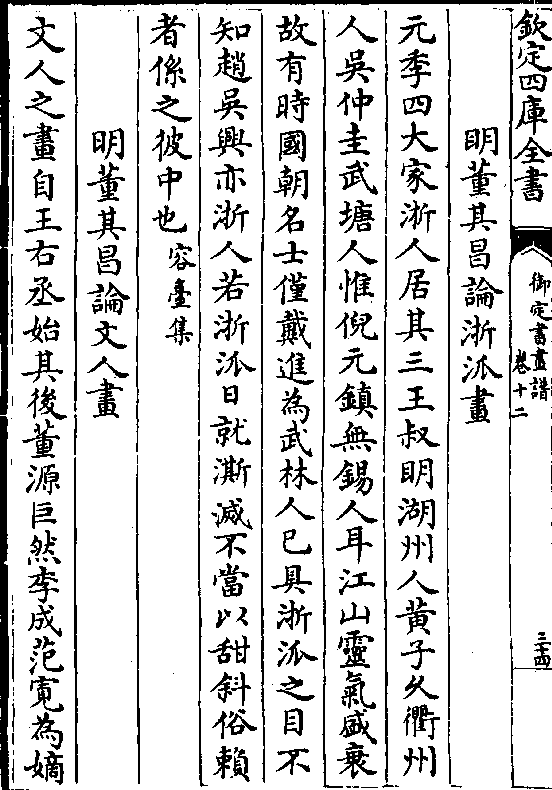 欽定四庫全書
御定書畫譜
卷十二
三十四
明董其昌論浙派畫
元季四大家浙人居其三王叔明湖州人黄子久衢州
人吳仲圭武塘人惟倪元鎮無錫人耳江山靈氣盛衰
故有時國朝名士僅戴進為武林人已具浙派之目不
知趙吳興亦浙人若浙派日就澌滅不當以甜斜俗賴
者係之彼中也容臺集
明董其昌論文人畫
文人之畫自王右丞始其後董源巨然李成范寛為嫡